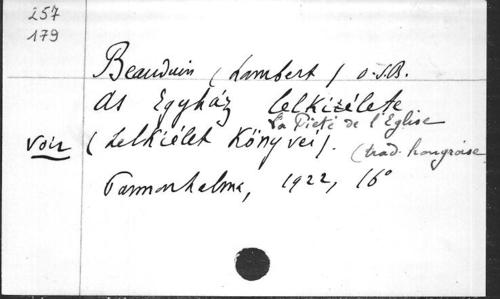 257
179
Beauduin (Lambert) O.S.B.
As Egyház lelkiélete
La Piété de l'Eglise
voir (Lelkiélet Könyvei).
(trad. hongroise
Pannonhalma, 1922, 16°